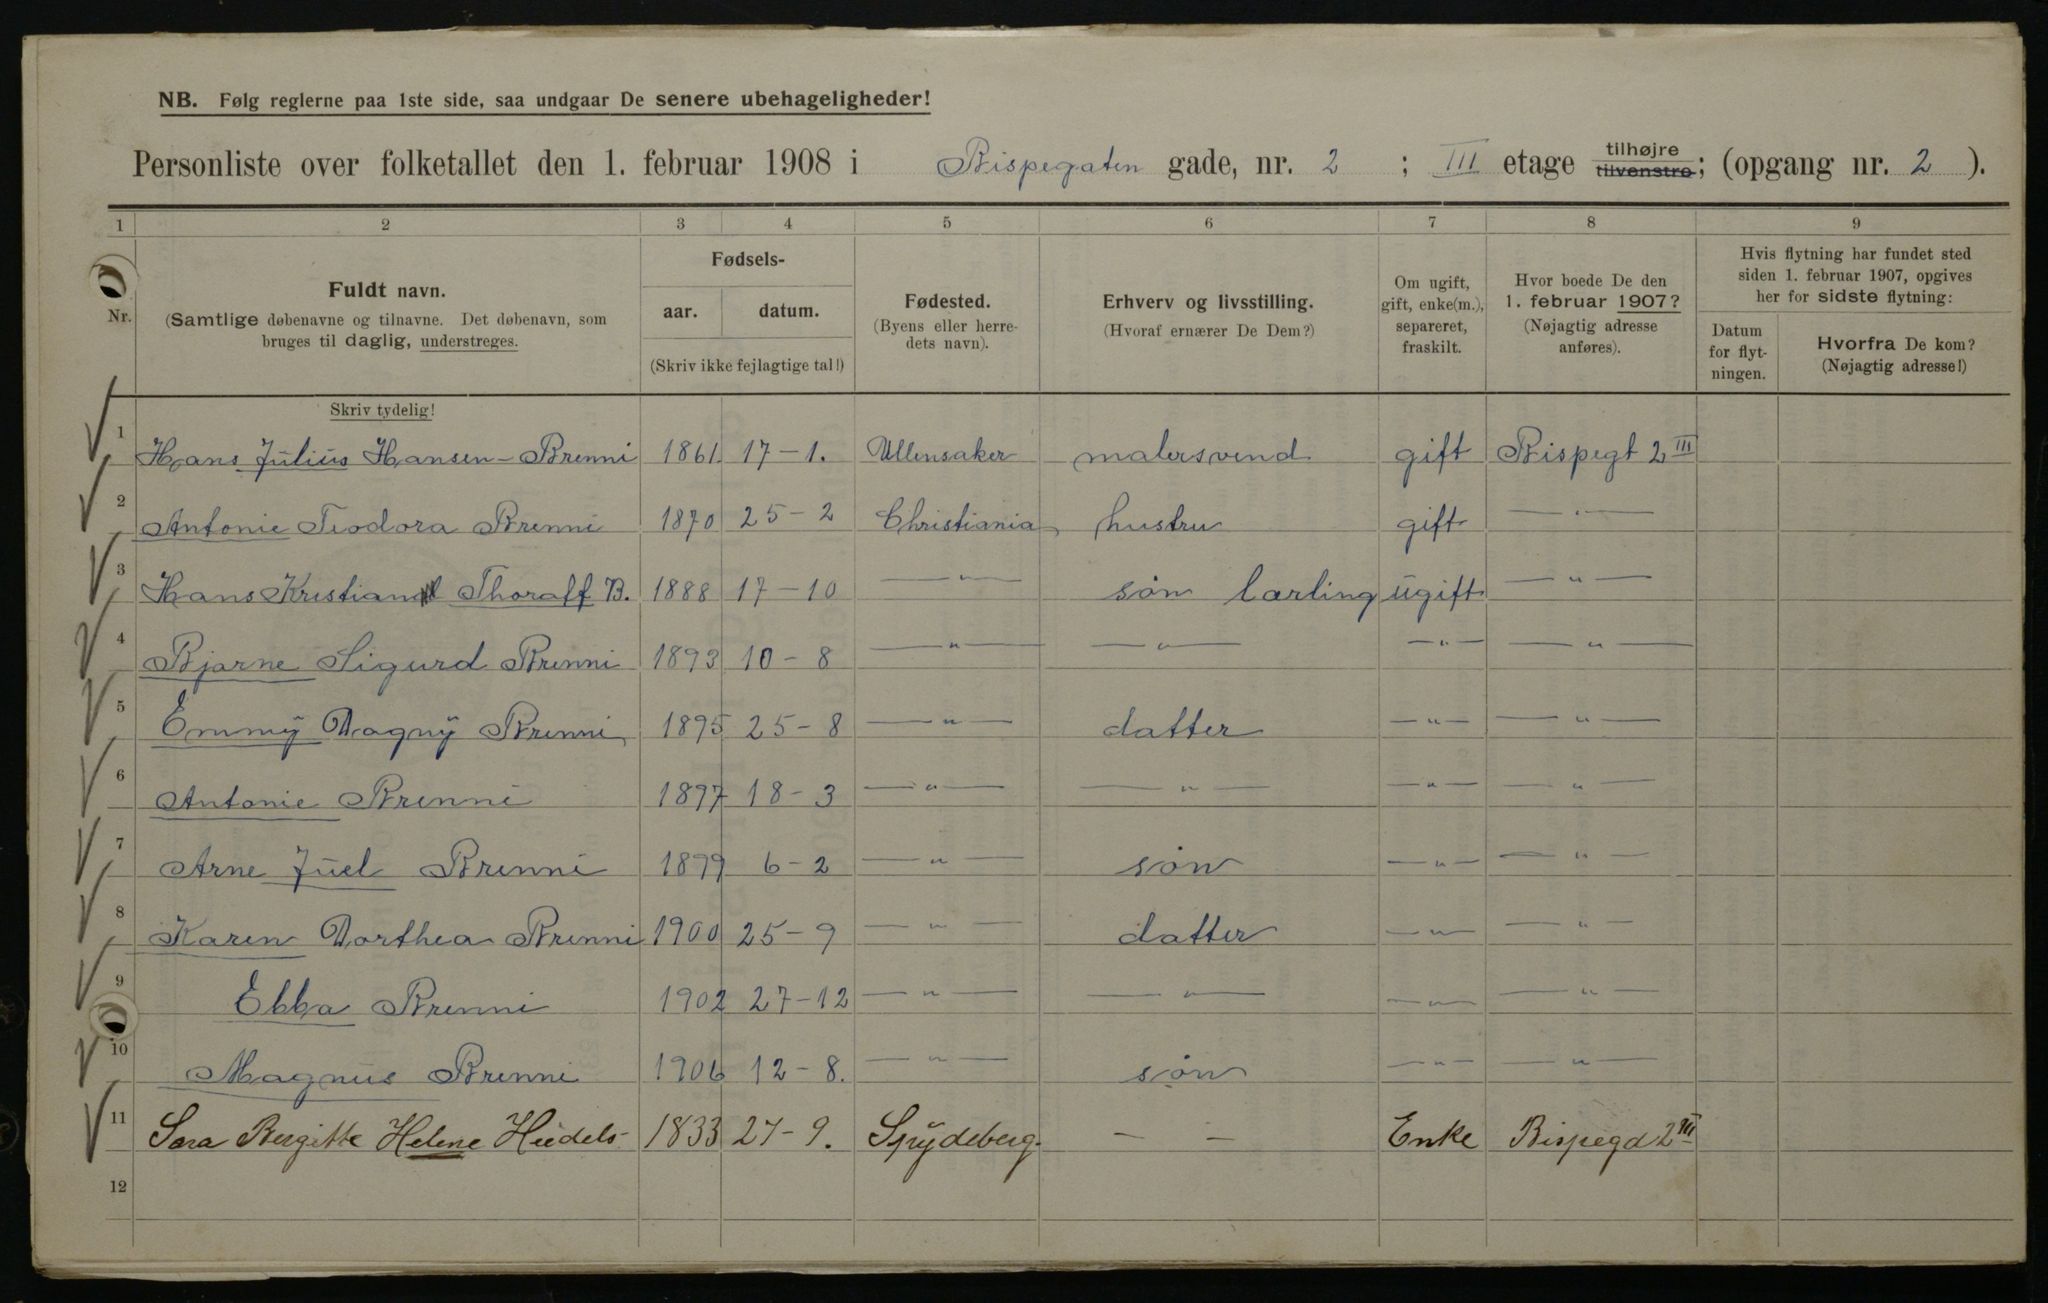 NB. Følg reglerne paa 1ste side, saa undgaar De senere ubehageligheder!
Personliste over folketallet den 1. februar 1908 i Bispegaten gade, nr. 2 ; III etage tilhøjre tilvenstre; (opgang nr. 2 ).
1 2 3 4 5 6 7 8 9
Nr.
Fuldt navn.
(Samtlige døbenavne og tilnavne. Det døbenavn, som
bruges til daglig, understreges.
Skriv tydelig!
Fødsels-
aar. datum.
(Skriv ikke fejlagtige tal!)
Fødested.
(Byens eller herre-
dets navn).
Erhverv og livsstilling.
(Hvoraf ernærer De Dem?)
Om ugift,
gift, enke(m.),
separeret,
fraskilt.
Hvor boede De den
1. februar 1907?
(Nøjagtig adresse
anføres).
Hvis flytning har fundet sted
siden 1. februar 1907, opgives
her for sidste flytning:
Datum
for flyt-
ningen.
Hvorfra De kom?
(Nøjagtig adresse!)
1 Hans Julius Hansen-Brenni 1861 17-1. Ullensaker malersvend gift Bispegt 2 III
2 Antonie Teodora Brenni 1870 25-2 Christiania hustru gift — " —
3 Hans Kristian Thoralf B. 1888 17-10 — " — søn lærling ugift — " —
4 Bjarne Sigurd Brenni 1893 10-8 — " — — " — — " — — " —
5 Emmy Dagny Brenni 1895 25-8 — " — datter — " — — " —
6 Antonie Brenni 1897 18-3 — " — — " — — " — — " —
7 Arne Juel Brenni 1899 6-2 — " — søn — " — — " —
8 Karen Dorthea Brenni 1900 25-9 — " — datter — " — — " —
9 Ebba Brenni 1902 27-12 — " — — " — — " — — " —
10 Magnus Brenni 1906 12-8. — " — søn — " — — " —
11 Sara Bergitte Helene Heidels- 1833 27-9. Spydeberg. — — Enke Bispegd 2 III
12